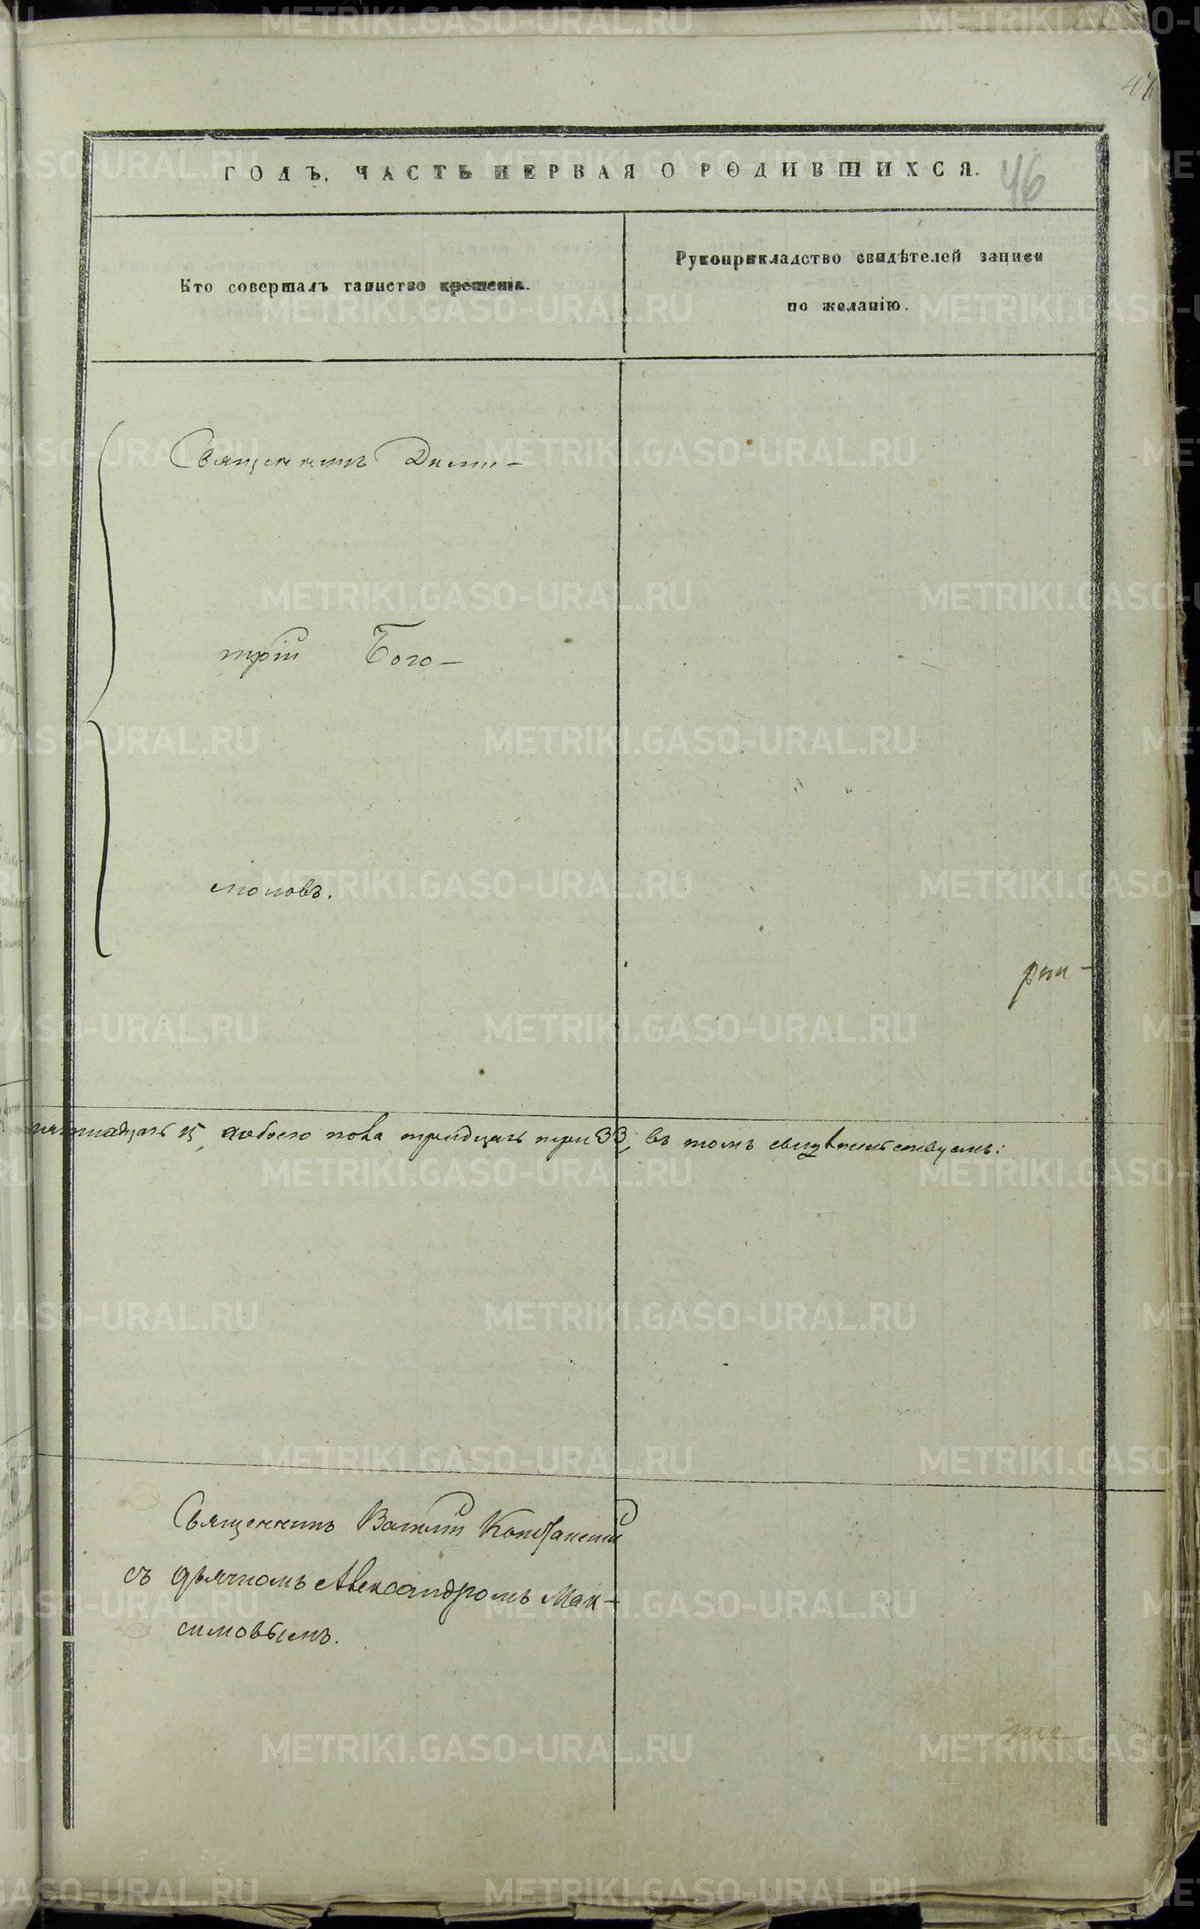 47
ГОДЪ. ЧАСТЬ ПЕРВАЯ О РОДИВШИХСЯ.
46
Кто совершалъ таинство крещенія.
Рукоприкладство свидѣтелей записи
по желанію.
Священникъ Дими-
трій Бого-
моловъ.
рпи-
пятнадцать 15, а обоего пола тридцать три 33, въ томъ свидѣтельствуемъ:
Священникъ Василій
съ дьячкомъ Александромъ Мак-
симовымъ.
METRIKI.GASO-URAL.RU